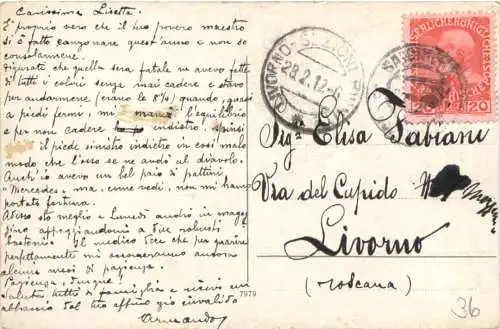 Carissima Lisetta.
È proprio vero che il tuo povero maestro
si è fatto canzonare quest'anno e non se
consolarmene.
Figurati che quella sera fatale ne avevo fatte
di tutti i colori senza mai cadere e stavo
per andarmene (erano le 8¾) quando, quasi
a piedi fermi, mi mancò l'equilibrio
e per non cadere indietro, spinsi
il piede sinistro indietro in così mal
modo che l'osso se ne andò al diavolo.
Anch'io avevo un bel paio di pattini
"Mercedes" ma, come vedi, non mi hanno
portato fortuna.
Adesso sto meglio e Lunedì andrò in magaz-
zino appoggiandomi a due robusti
bastoni. Il medico dice che per guarire
perfettamente mi occorreranno ancora
alcuni mesi di pazienza.
Pazienza, dunque!
Saluta tutti di famiglia e ricevi un
abbraccio dal tuo affmo zio invalido
Armando
7979
LIVORNO
28.2.12
20 20
Sigª Elisa Fabiani
Via del Cupido
Livorno
(Toscana)
36